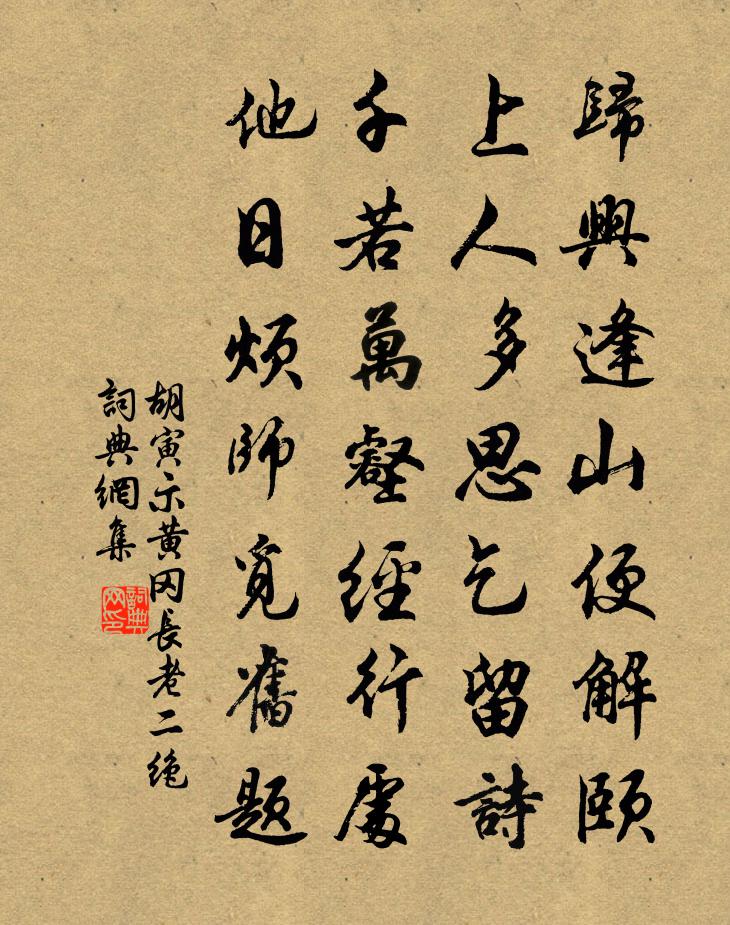 歸興逢山便解頤
上人多思乞留詩
千若萬壑經行處
他日煩師覓舊題
胡寅示黃冈長老二绝
詞典網集
詞典
网印